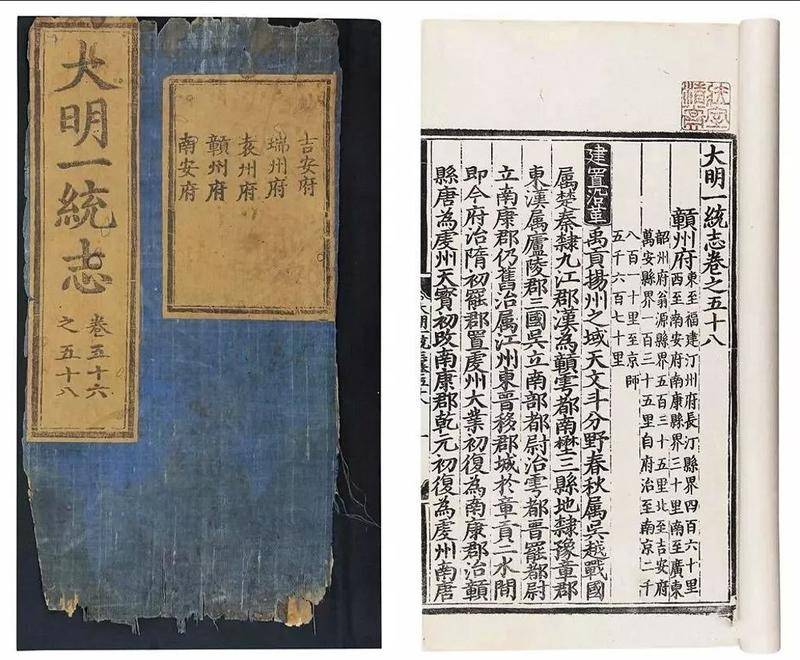 大明一統志
卷五十六
之五十八
吉安府
瑞州府
袁州府
贛州府
南安府
大明一統志卷之五十八
贛州府
東至福建汀州府長汀縣界四百六十里
西至南安府南康縣界三十里南至廣東
韶州府翁源縣界五百三十五里北至吉安府
萬安縣界一百三十五里自府治至南京二千
八百一十里至京師
五千六百七十里
建置沿革禹貢揚州之域天文斗分野春秋属吳越戰國
属楚秦隸九江郡漢為贛雩都南壄三縣地隸豫章郡
東漢属廬陵郡三國吳立南部都尉治雩都晋罷都尉
立南康郡仍舊治属江州東晋移郡城於章貢二水間
即今府治隋初罷郡置虔州大業初復為南康郡治贛
縣唐為虔州天寶初改南康郡乾元初復為虔州南唐